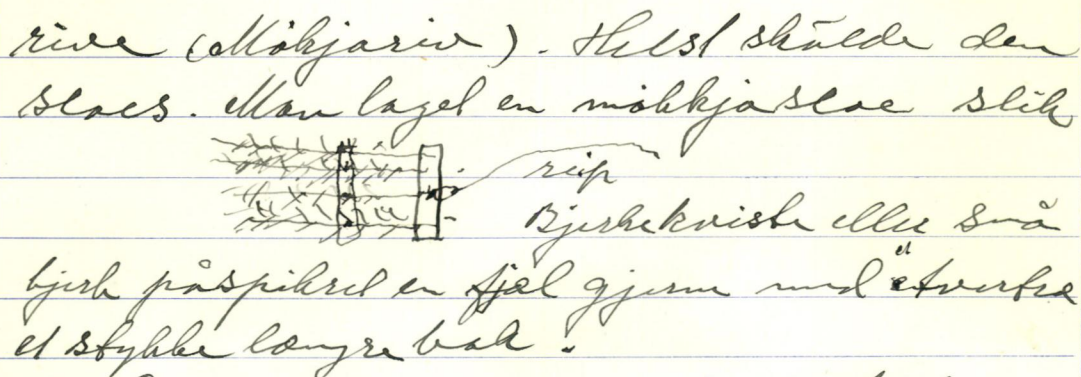 rive (Møkjariv). Helst skulde den
sloes. Man laget en møkkjasloe slik
reip
Bjerkekviste eller små
bjerk påspikret en fjæl gjerne med et tvertræ
et stykke længre bak.